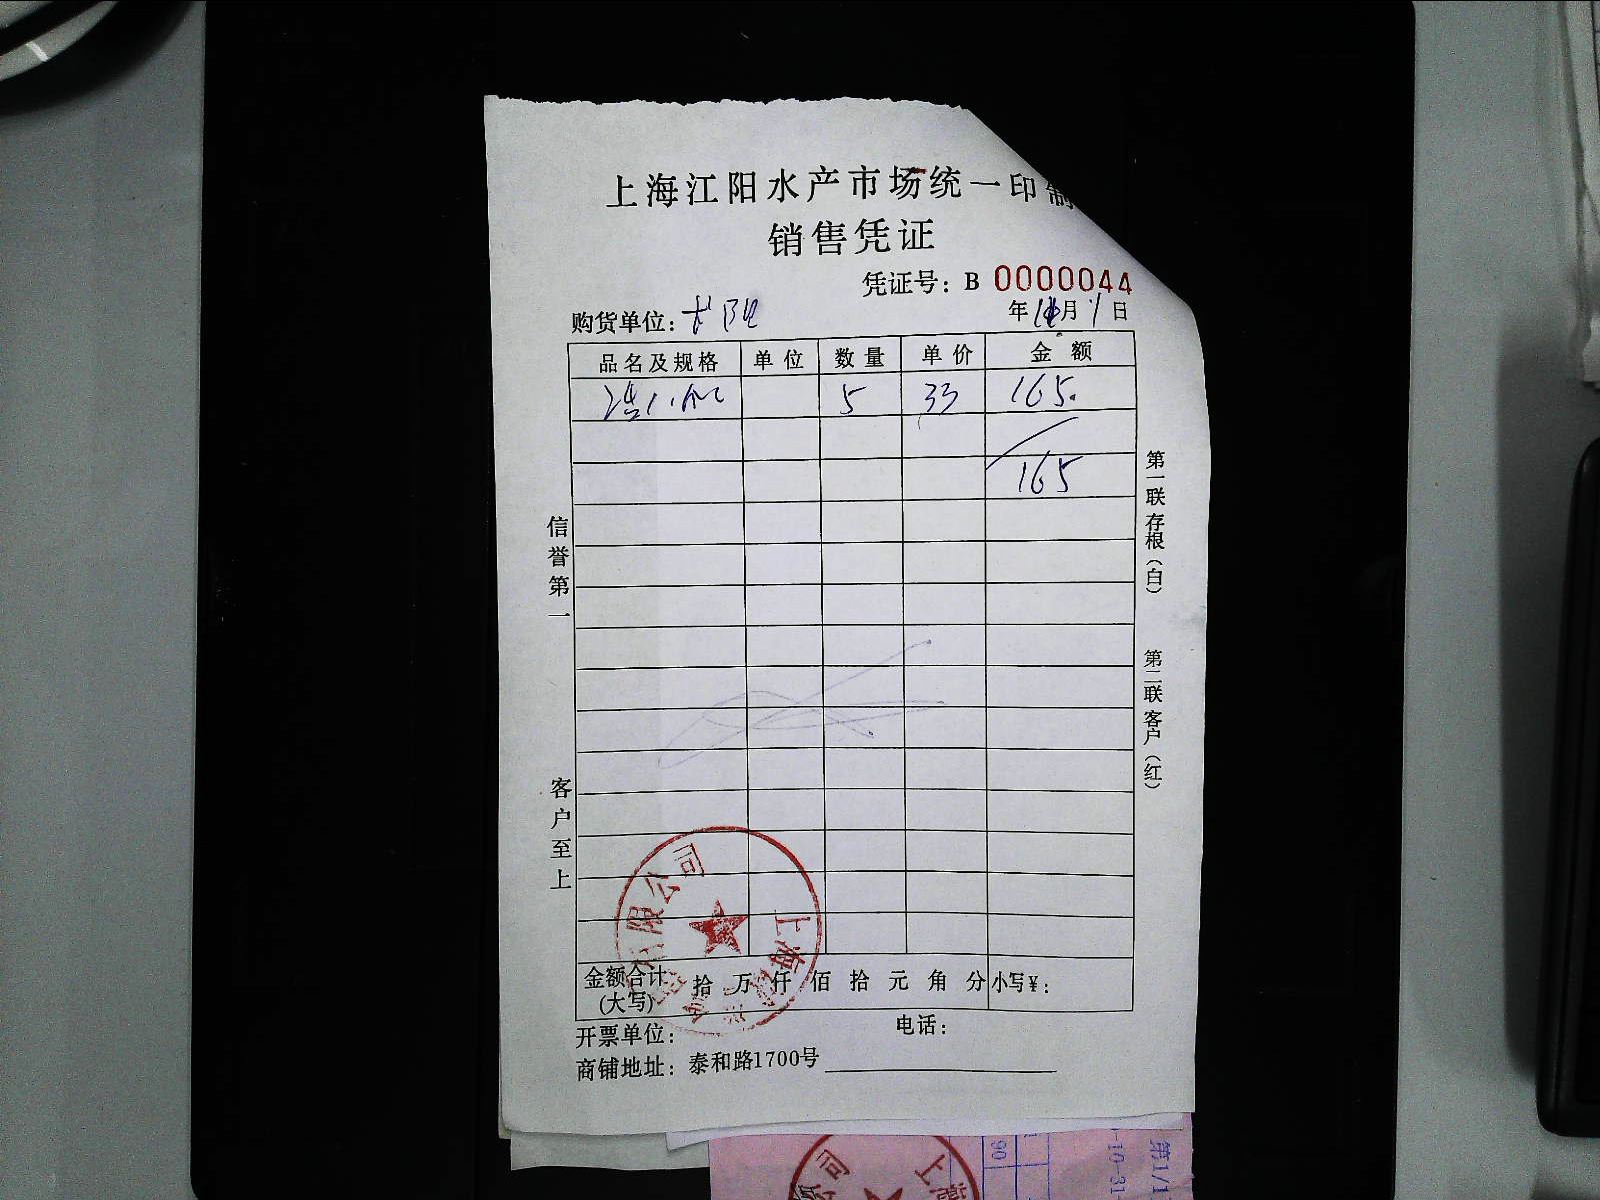 上海江阳水产市场统一印制
销售凭证
凭证号：B 0000044
购货单位：
年 月 1 日
品名及规格 单位 数量 单价 金额
5 33 165.
165
信誉第一
客户至上
第一联存根（白）
第二联客户（红）
金额合计(大写) 拾 万 仟 佰 拾 元 角 分 小写¥：
开票单位： 电话：
商铺地址：泰和路1700号
上海 限公司
90
-10-31
第1/1
公司 上海